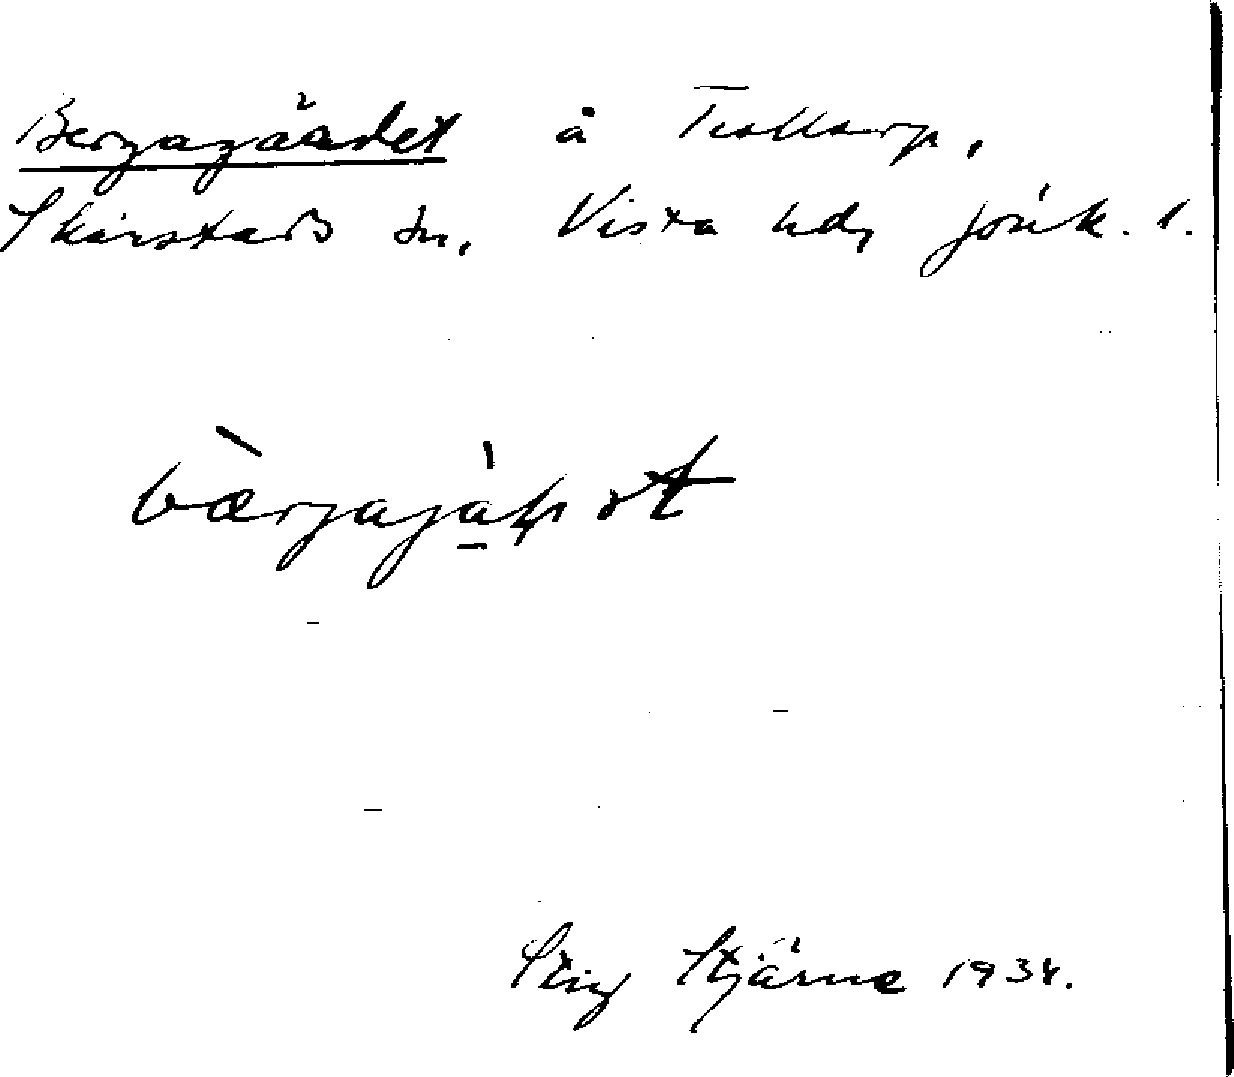 Bergagärdet å Trollarp,
Skärstads sn, Vista hd, Jönk. l.
Stig Stjärne 1934.